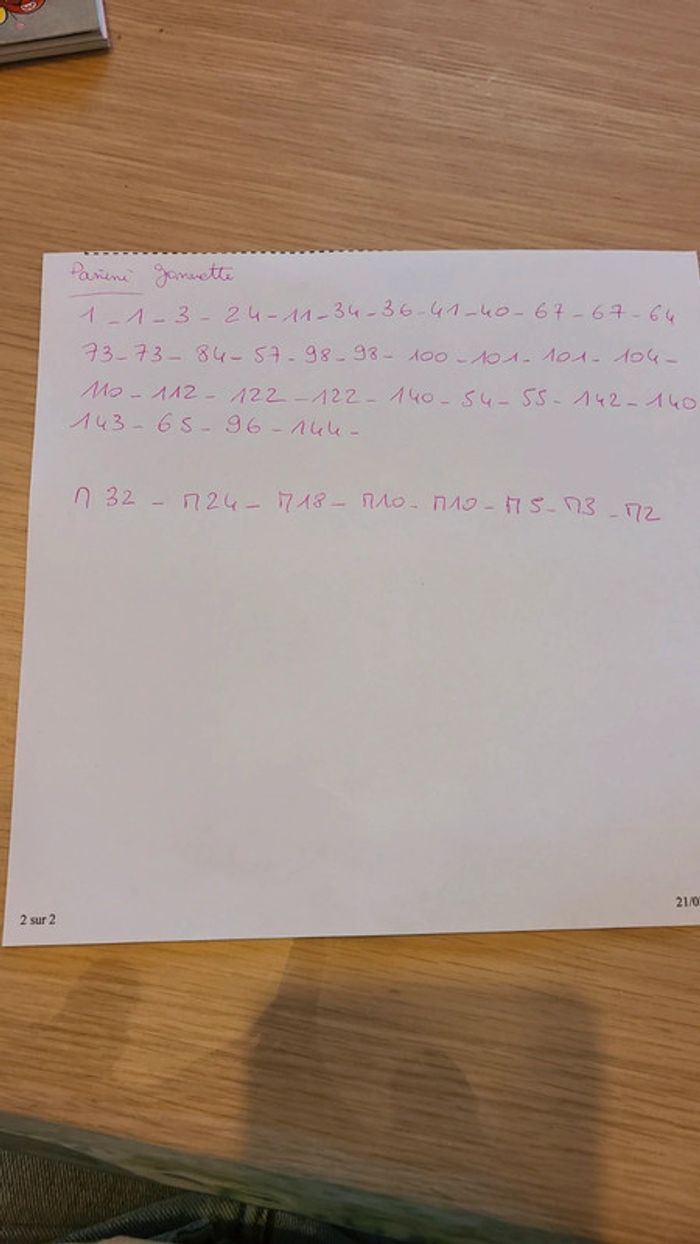 Panini Jannette
1 - 1 - 3 - 24 - 11 - 34 - 36 - 41 - 40 - 67 - 67 - 64
73 - 73 - 84 - 57 - 98 - 98 - 100 - 101 - 101 - 104 -
110 - 112 - 122 - 122 - 140 - 54 - 55 - 142 - 140
143 - 65 - 96 - 144 -
M 32 - M24 - M18 - M10 - M10 - M5 - M3 - M2
2 sur 2
21/0